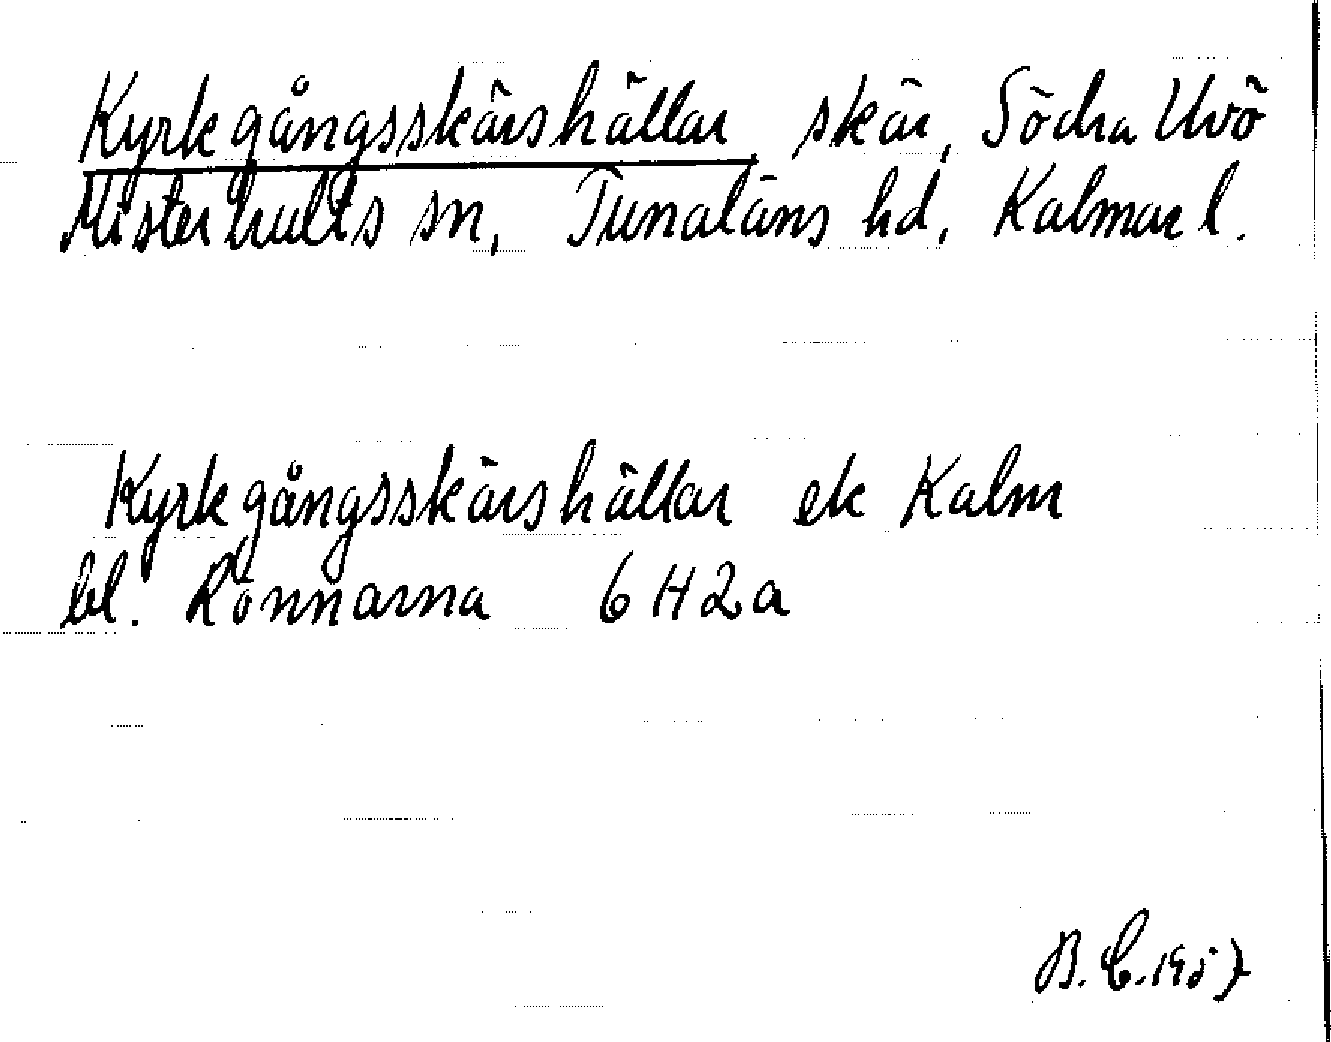 Kyrkgångsskärshällar skär, Södra Uvö
Misterhults sn, Tunaläns hd, Kalmar l.
Kyrkgångsskärshällar ek Kalm
bl. Rönnarna 6H2a
B.C. 1957